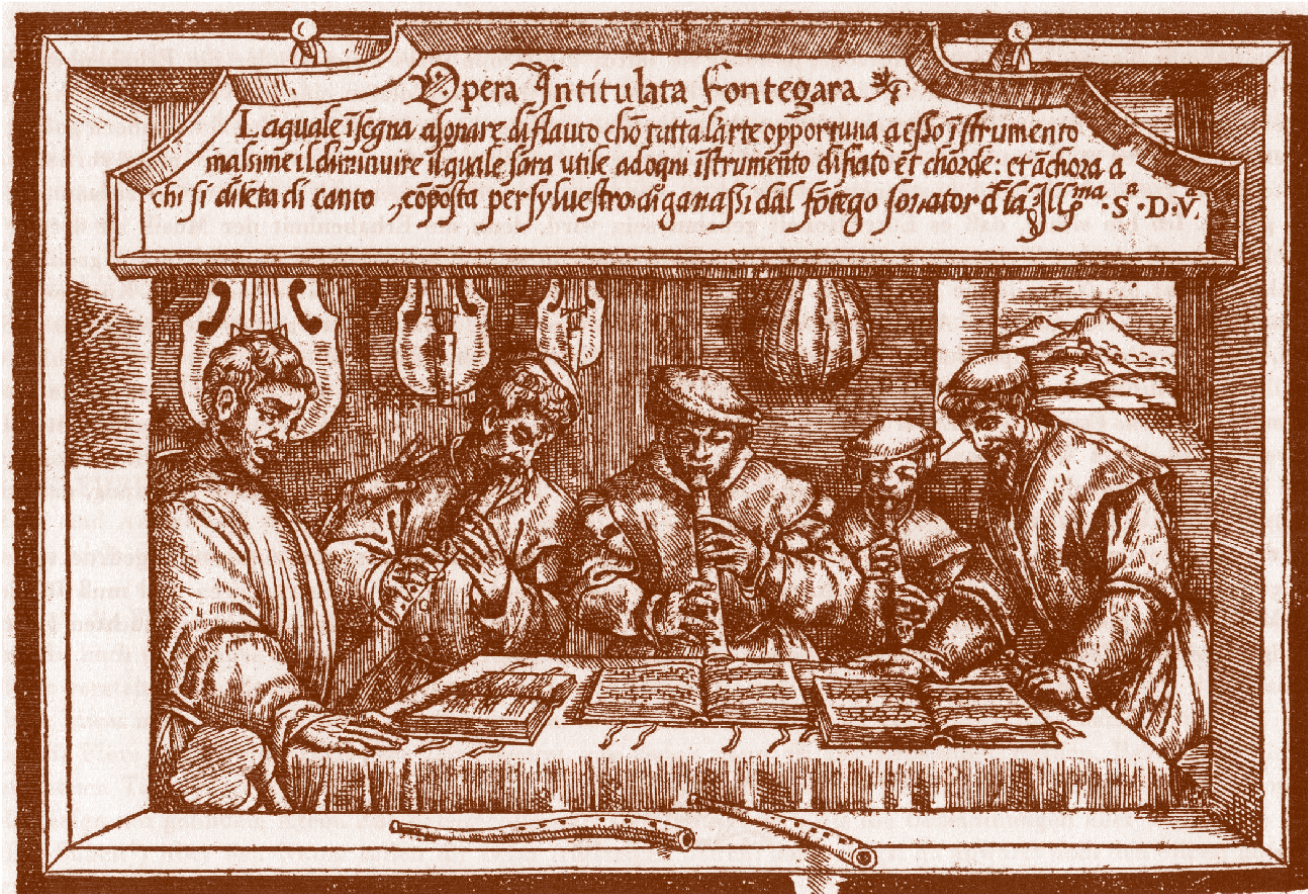 Opera Intitulata Fontegara
Laquale īsegna a sonare di flauto chō tutta l'arte opportuna a esso īstrumento
maſsime il diminuire il quale sara utile ad ogni īstrumento di fiato et chorde: et āchora a
chi si dileta di canto, cōposta per sylvestro di ganaſsi dal fōtego sonator d̄ la Illma. Sa. D. Va